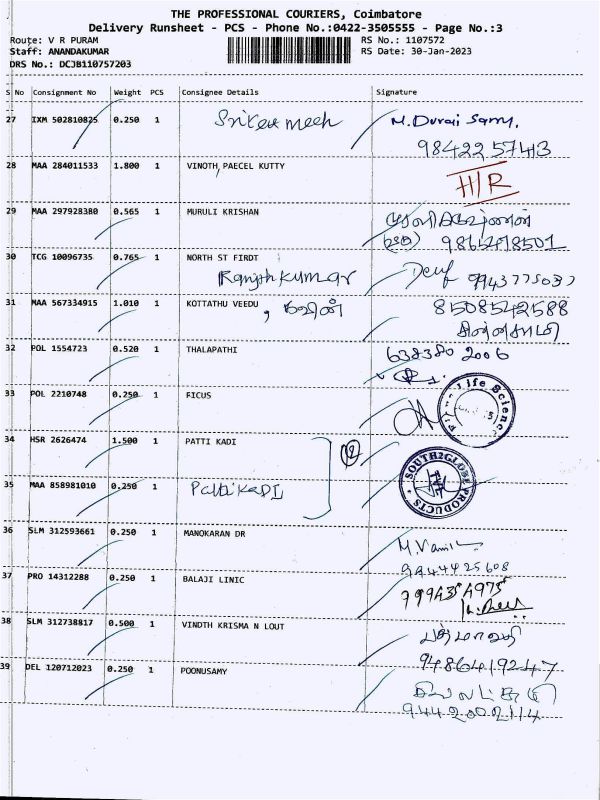 THE PROFESSIONAL COURIERS, Coimbatore
Delivery Runsheet - PCS - Phone No.:0422-3505555 - Page No.:3
Route: V R PURAM RS No.: 1107572
Staff: ANANDAKUMAR RS Date: 30-Jan-2023
DRS No.: DCJB110757203
S No Consignment No Weight PCS Consignee Details Signature
27 IXM 502810825 0.250 1 M. Durai Samy.
98422 57413
28 MAA 284011533 1.800 1 VINOTH, PAECEL KUTTY H/R
29 MAA 297928380 0.565 1 MURULI KRISHAN
30 TCG 10096735 0.765 1 NORTH ST FIRDT
Ranjith Kumar
31 MAA 567334915 1.010 1 KOTTATHU VEEDU 8508542588
சின்னசாமி
32 POL 1554723 0.520 1 THALAPATHI 638380 2006
33 POL 2210748 0.250 1 FICUS Life Science
34 HSR 2626474 1.500 1 PATTI KADI
SOUTH2GLOBE PRODUCTS
35 MAA 858981010 0.250 1 PattiKadi
36 SLM 312593661 0.250 1 MANOKARAN DR
9944425608
37 PRO 14312288 0.250 1 BALAJI LINIC 799435 4975
38 SLM 312738817 0.500 1 VINDTH KRISMA N LOUT பத்மாவதி
9486419247
39 DEL 120712023 0.250 1 POONUSAMY
9442002114